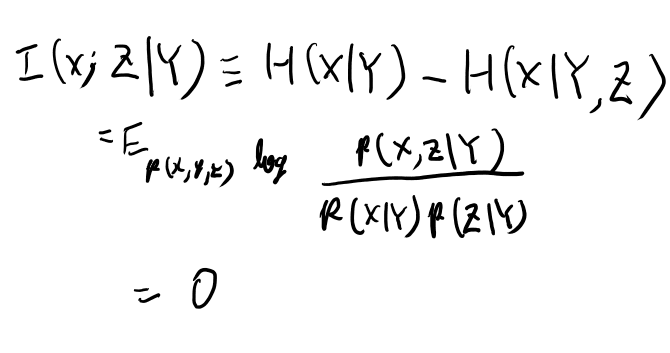 I(X; Z|Y) ≡ H(X|Y) − H(X|Y,Z)
= E_{p(x,y,z)} log \frac{p(X,Z|Y)}{p(X|Y)p(Z|Y)}
= 0